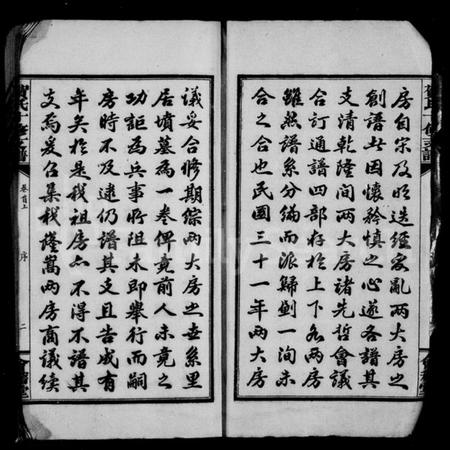 房自宋及明迭經變亂兩大房之
創譜者因懷矜慎之心遂各譜其
支清乾隆間兩大房諸先哲會議
合訂通譜四部存於上下各兩房
雖然譜系分編而派歸劃一洵未
合之合也民國三十一年兩大房
議妥合修期綜兩大房之世系里
居墳墓為一卷俾竟前人未竟之
功詎為兵事所阻未即舉行而嗣
房時不及逮仍譜其支且告成有
年矣於是我祖房亦不得不譜其
支焉爰召集我隆嵩兩房商議續
賀氏十修支譜
卷首上
序
二
會
堂